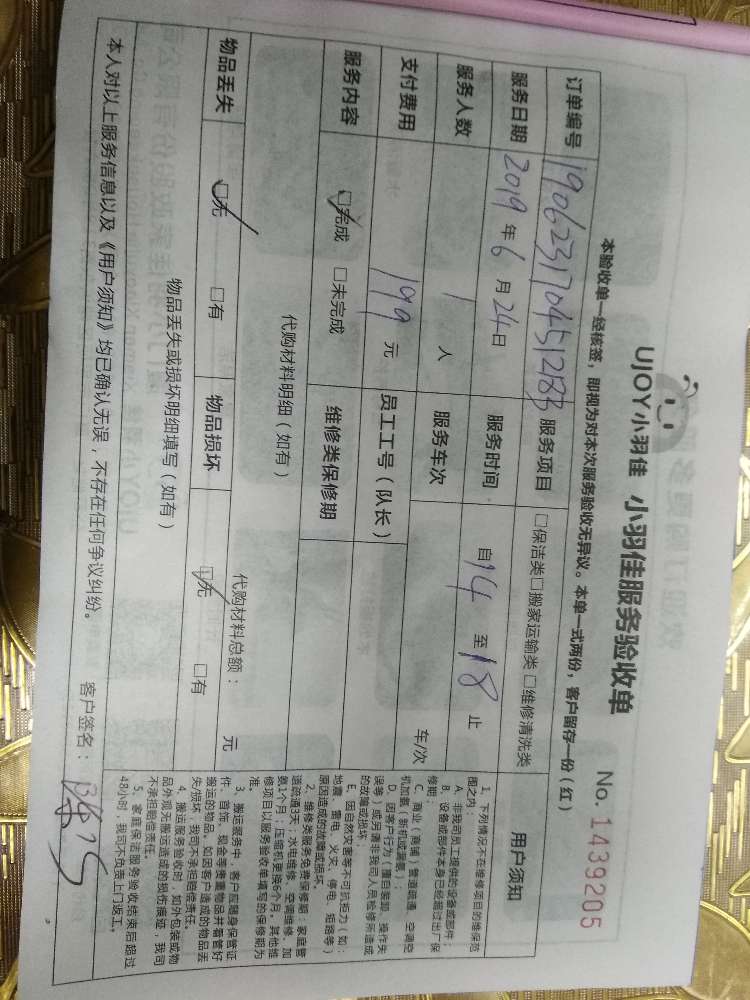 UJOY小羽佳 小羽佳服务验收单
No. 1439205
本验收单一经核签，即视为对本次服务验收无异议。本单一式两份，客户留存一份（红）
订单编号 190623170451283 服务项目 □保洁类□搬家运输类□维修清洗类
服务日期 2019 年 6 月 24日 服务时间 自14 至18 止
服务人数 1 人 服务车次 车/次
支付费用 199 元 员工工号（队长）
服务内容 ☑完成 □未完成 维修类保修期
代购材料明细（如有） 代购材料总额： 元
物品丢失 ☑无 □有 物品损坏 ☑无 □有
物品丢失或损坏明细填写（如有）
本人对以上服务信息以及《用户须知》均已确认无误，不存在任何争议纠纷。 客户签名：
用户须知
1、下列情况不在维修项目的维保范
围之内：
A、非我司员工提供的设备或部件；
B、设备或部件本身已经超过出厂保
修期；
C、商业（商铺）管道疏通、空调空
机加氟（新机或漏氟）；
D、因客户行为（擅自装卸、操作失
误等）或另请非我司人员检修所造成
的故障或损坏；
E、因自然灾害等不可抗拒力（如：
地震、雷电、火灾、停电、短路等）
原因造成的故障或损坏。
2、维修类服务免费保修期：家庭管
道疏通3天，水电维修、空调维修、加
氨1个月；压缩机更换6个月。其他维
修项目以服务验收单填写的保修期为
准。
3、搬运服务中，客户应随身保管证
件、首饰、现金等贵重物品并看管好
搬运的物品。如因客户造成的物品丢
失/损坏，我司不承担赔偿责任。
4、搬运服务验收时，如外包装或物
品外观无搬运造成的损伤痕迹，我司
不承担赔偿责任。
5、家庭保洁服务验收结束后超过
48小时，我司不负责上门返工。